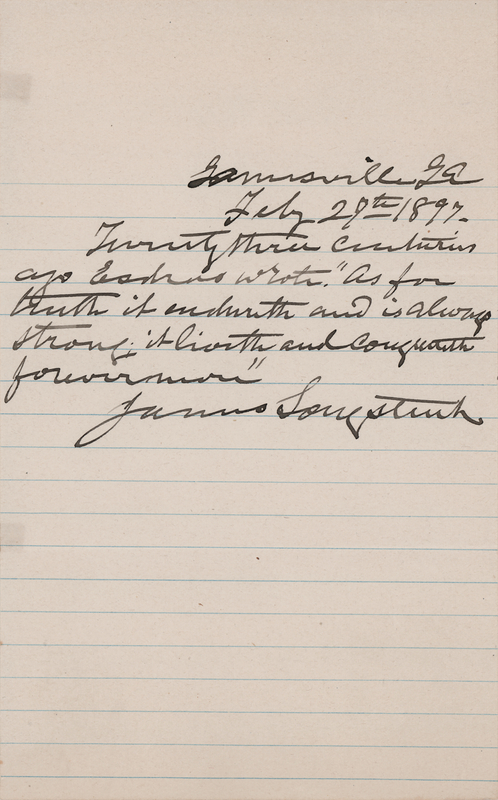 Gainesville Ga
Feby 27th 1897.
Twenty three centuries
ago Esdras wrote. "As for
truth it endureth and is always
strong; it liveth and conquereth
forevermore"
James Longstreet.